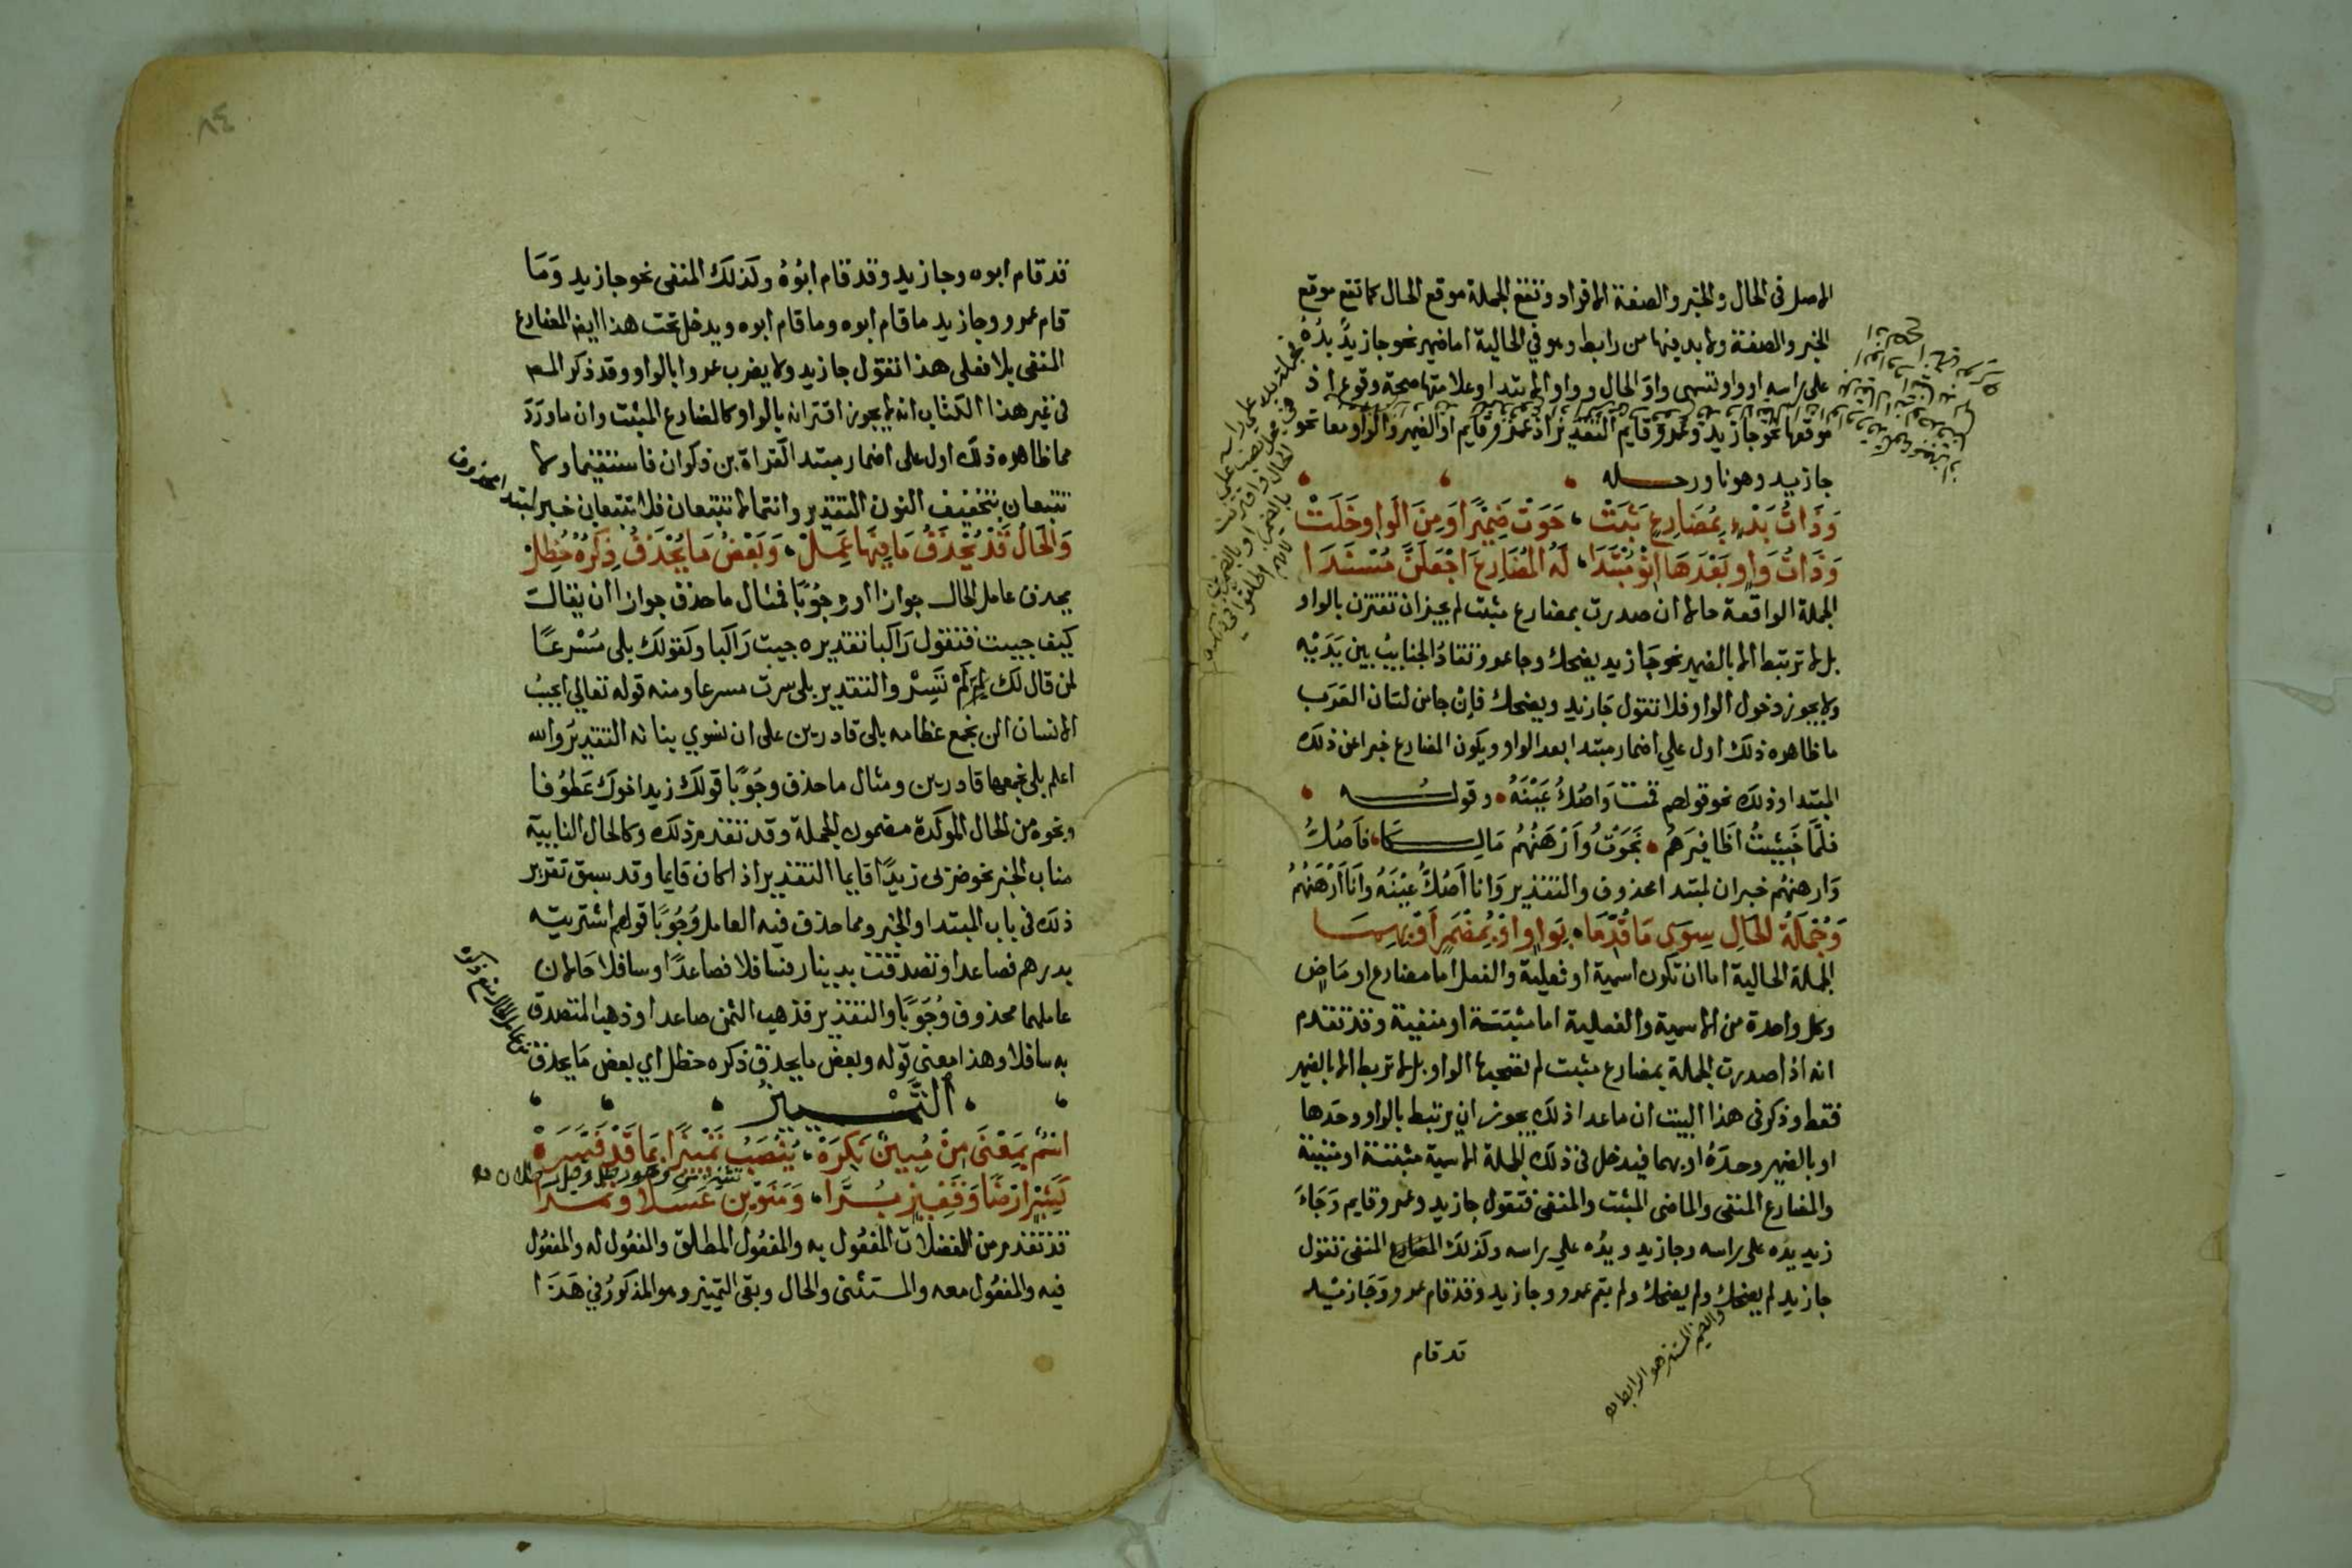 الاصل في الحال والخبر والصفة الافراد وتقع الجملة موقع الحال كما تقع موقع
الخبر والصفة ولا بد فيها من رابط وهو في الحالية اما ضمير نحو جا زيدٌ يدُهُ
على راسه او واو وتسمى واو الحال وواو الابتدا وعلامتها صحة وقوع اذ
موقعها نحو جا زيد وعمرو قايم التقدير اذ عمرو قايم او الضمير والواو معا نحو
جا زيد وهو ناو رحله
وَذَاتُ بَدْءٍ بِمُضَارِعٍ ثَبَتْ ، حَوَتْ ضَمِيْرًا وَمِنَ الْوَاوِ خَلَتْ
وَذَاتُ وَاوٍ بَعْدَهَا انْوِ مُبْتَدَا ، لَهُ الْمُضَارِعَ اجْعَلَنَّ مُسْنَدَا
الجملة الواقعة حالا ان صدرت بمضارع مثبت لم يجز ان تقترن بالواو
بل لا تربتط الا بالضمير نحو جَا زيد يضحك وجا عمرو تقادُ الجنايبُ بين يَدَيْه
ولا يجوز دخول الواو فلا تقول جَا زيد ويضحك فإن جا من لسان العَرَب
ما ظاهره ذلك اول علي اضمار مبتدا بعد الواو ويكون المضارع خبرا عن ذلك
المبتدا وذلك نحو قولهم قمت وَاصُكُّ عَيْنَهُ ، وقوله
فلمَّا خَشِيْتُ اَظَافِيرَهُم ، نَجَوْتُ وَاَرْهَنُهُم مَالِكَا ، فاَصُكُّ
وَارهنهُم خبران لمبتدا محذوف والتقدير وَانا اَصُكُّ عَيْنَهُ وَانَا اَرْهَنُهُم
وَجُمْلَةُ الحَالِ سِوَى مَا قُدِّمَا ، بِوَاوٍ اوْ بِمُضْمَرٍ اَوْ بِهِمَا
الجملة الحالية اما ان تكون اسمية او فعلية والفعل اما مضارع او مَاضٍ
وكل واحدة من الاسمية والفعلية اما مثبتة او منفية وقد تقدم
انه اذا صدرت الجملة بمضارع مثبت لم تصحبها الواو بل لا تربط الا بالضمير
فقط وذكر في هذا البيت ان ما عدا ذلك يجوز ان يرتبط بالواو وحَدها
او بالضمير وحدَهُ او بهما فيدخل في ذلك الجملة الاسمية مثبتة او منفية
والمضارع المنفى والماضى المثبت والمنفى فتقول جا زيد وعمرو قايم وَجَاءَ
زيد يدُه على راسه وجا زيد ويدُه علي راسه وكذلك المضارع المنفى تقول
جا زيد لم يضحك ولم يضحك ولم يقم عمرو وجا زيد وقد قام عمرو وَجَا زيد
والضمير المستتر هو الرابط
قد قام
٨٤
قد قام ابوه وجا زيد وقد قام ابُوْهُ وكَذلكَ المنفى نحو جا زيد وَمَا
قام عمرو وجا زيد ما قام ابوه وما قام ابوه ويدخل تحت هذا ايضا المضارع
المنفى بلا فعلى هذا تقول جا زيد ولا يضرب عمروا بالواو وقد ذكر المص
في غير هذا الكتاب انه لا يجوز اقترانه بالواو كالمضارع المثبت وان ما وَرَدَ
مما ظاهره ذلك اول على اضمار مبتد القراة بن ذكوان فاستقيما ولا
تتبعان بتخفيف النون التقدير وانتما لا تتبعان فلا تتبعان خبر لمبتدا محذوف
وَالحَالُ قَدْ يُحْذَفُ مَا فِيْهَا عَمِلْ ، وَبَعْضُ مَا يُحْذَفُ ذِكْرُهُ حُظِلْ
يحذف عامل الحال جوازا او وجُوْبًا فمثال ما حذف جوازا ان يقالَ
كيف جيت فتقول رَاكبا تقديره جيت رَاكبا وكقولك بلى مُسْرعًا
لمن قال لك لم تَسِرْ والتقدير بلى سرت مسرعا ومنه قوله تعالي ايحسِبُ
الانسان الن نجمع عظامه بلى قادرين على ان نسوي بنانه التقديرُ والله
اعلم بلى نجمعها قادرين ومثال ما حذف وجُوْبًا قولكَ زيد اخوك عَطُوْفا
ونحوه من الحال الموكدة مضمون الجملة وقد تقدم ذلك وكالحال النايبة
مناب الخبر نحو ضربى زيدًا قايما التقدير اذا كان قايما وقد سبق تقرير
ذلك في باب المبتدا والخبر ومما حذف فيه العامل وُجُوْبًا قولهم اشتريته
بدرهم فصاعدا وتصدقت بدينار فسافلا فصاعدًا وسافلا حَالان
عاملهما محذوف وُجُوْبًا والتقدير فذهب الثمن صاعدا وذهب المتصدق
به سافلا وهذا معنى قوله وبعض ما يحذف ذكره حظل اي بعض مَا يحذف
التَّمْيِيزُ
اسْمٌ بِمَعْنَى مِنْ مُبِيْنٌ نَكِرَهْ ، يُنْصَبُ تَمْيِيْزًا بِمَا قَدْ فَسَّرَهْ
كَشِبْرٍ ارْضًا وَقَفِيْزٍ بُرَّا ، وَمَنَوَيْنِ عَسَلًا وَتَمْرَا
قد تقدم من الفضلات المفعُول به والمفعُول المطلق والمفعُول له والمفعُول
فيه والمفعُول معه والمستثنى والحال وبقى التمييز وهو المذكورُ في هَذَا